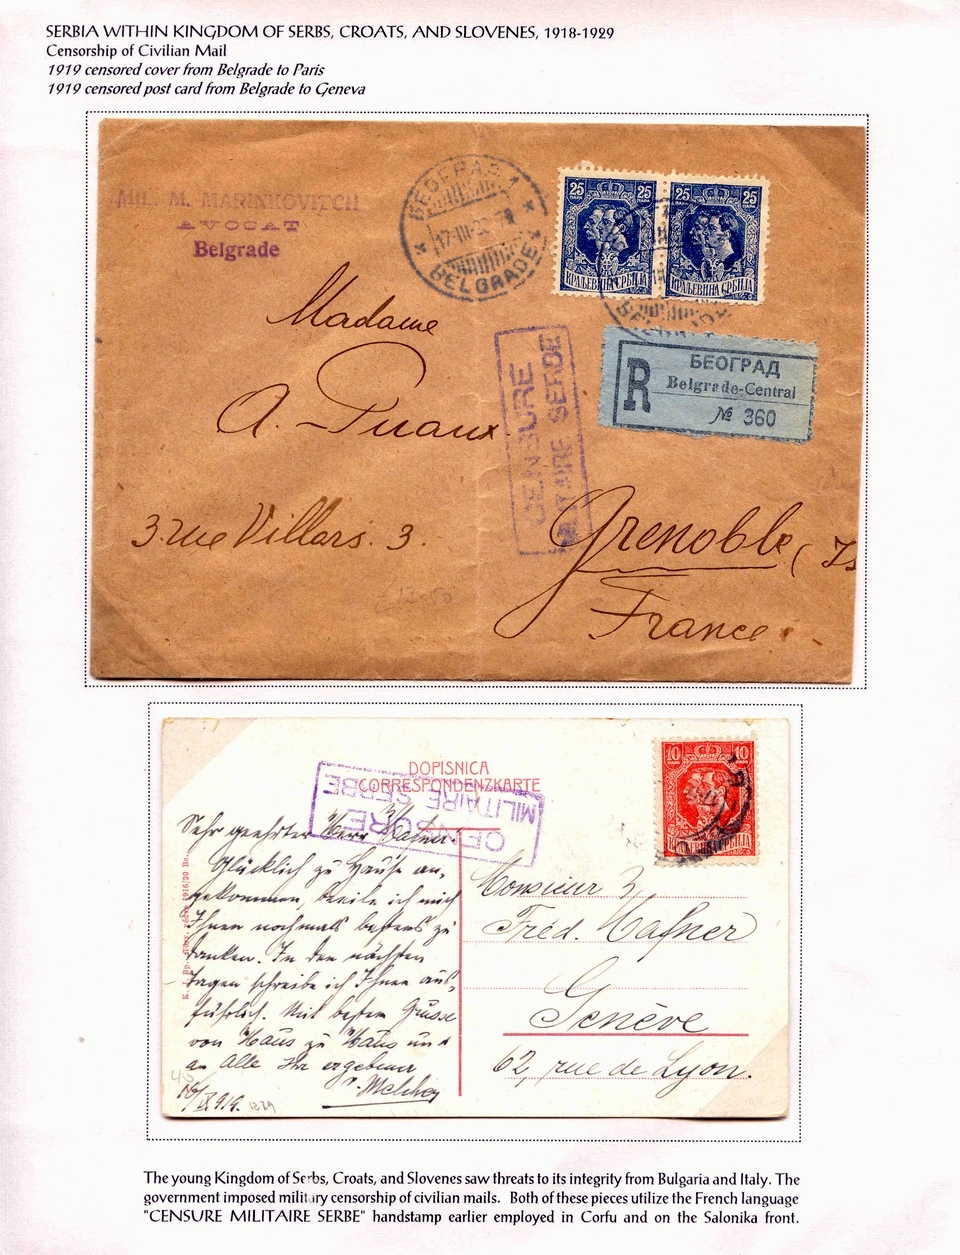 SERBIA WITHIN KINGDOM OF SERBS, CROATS, AND SLOVENES, 1918-1929
Censorship of Civilian Mail
1919 censored cover from Belgrade to Paris
1919 censored post card from Belgrade to Geneva
MIL. M. MARINKOVITCH
AVOCAT
Belgrade
BELGRADE
25 25
25 25
КРАЉЕВИНА СРБИЈА
КРАЉЕВИНА СРБИЈА
Madame
A. Puaux
3. rue Villars. 3.
CENSURE
MILITAIRE SERBE
R
БЕОГРАД
Belgrade-Central
№ 360
Grenoble (Is
France
DOPISNICA
CORRESPONDENZKARTE
CENSURE
MILITAIRE SERBE
10 10
Sehr geehrter Herr Hafner
Glücklich zu Hause an-
gekommen, beeile ich mich
Ihnen nochmals bestens zu
danken. In den nächsten
Tagen schreibe ich Ihnen aus-
führlich. Mit besten Grüsse
von Haus zu Haus und
an Alle Ihr ergebener
Monsieur
Fréd. Hafner
Genève
62, rue de Lyon.
The young Kingdom of Serbs, Croats, and Slovenes saw threats to its integrity from Bulgaria and Italy. The
government imposed military censorship of civilian mails. Both of these pieces utilize the French language
"CENSURE MILITAIRE SERBE" handstamp earlier employed in Corfu and on the Salonika front.